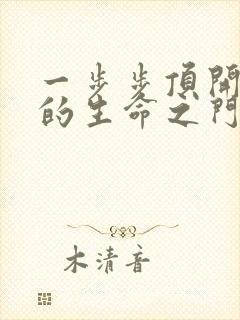 一步步頂開
的生命之門
木清音